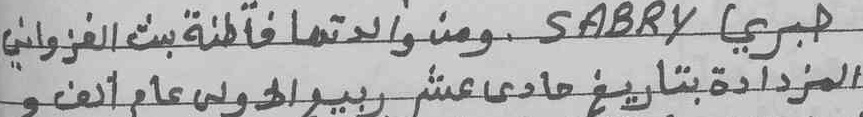 صبري SABRY . ومن والدتها فاطنة بنت الغزواني
المزدادة بتاريخ حادى عشر ربيع الاولى عام ألف و